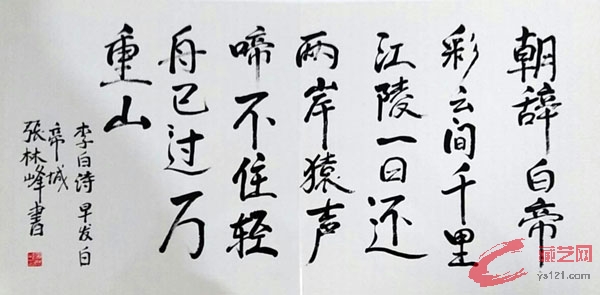 朝辞白帝
彩云间千里
江陵一日还
两岸猿声
啼不住轻
舟已过万
重山
李白诗早发白
帝城
張林峰書
艺网
ys121.com